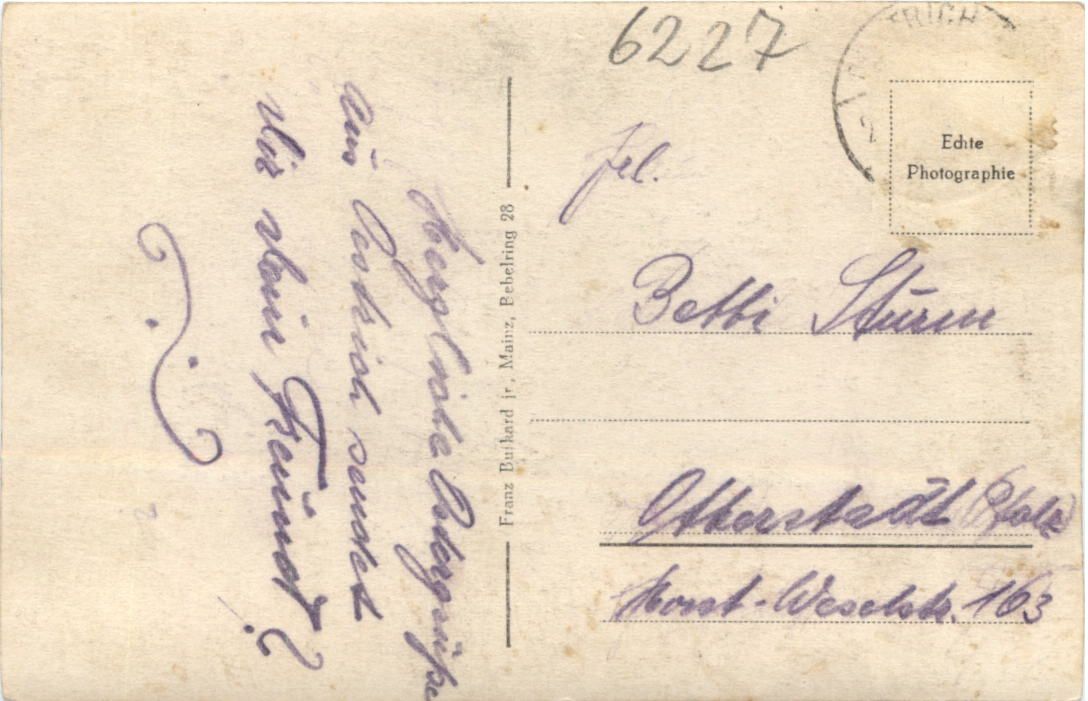 6227
Echte
Photographie
Herzliche Ostergrüße
aus Oestrich sendet
Dir dein Freund?
Franz Burkard jr., Mainz, Bebelring 28
Frl.
Betti Sturm
Otterstadt (Pfalz)
Horst-Weselstr. 163